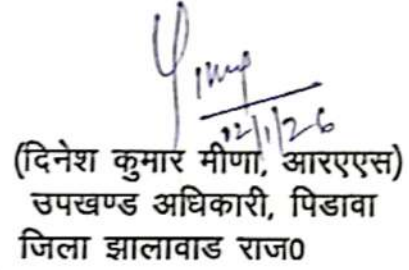 12/1/26
(दिनेश कुमार मीणा, आरएएस)
उपखण्ड अधिकारी, पिडावा
जिला झालावाड राज0